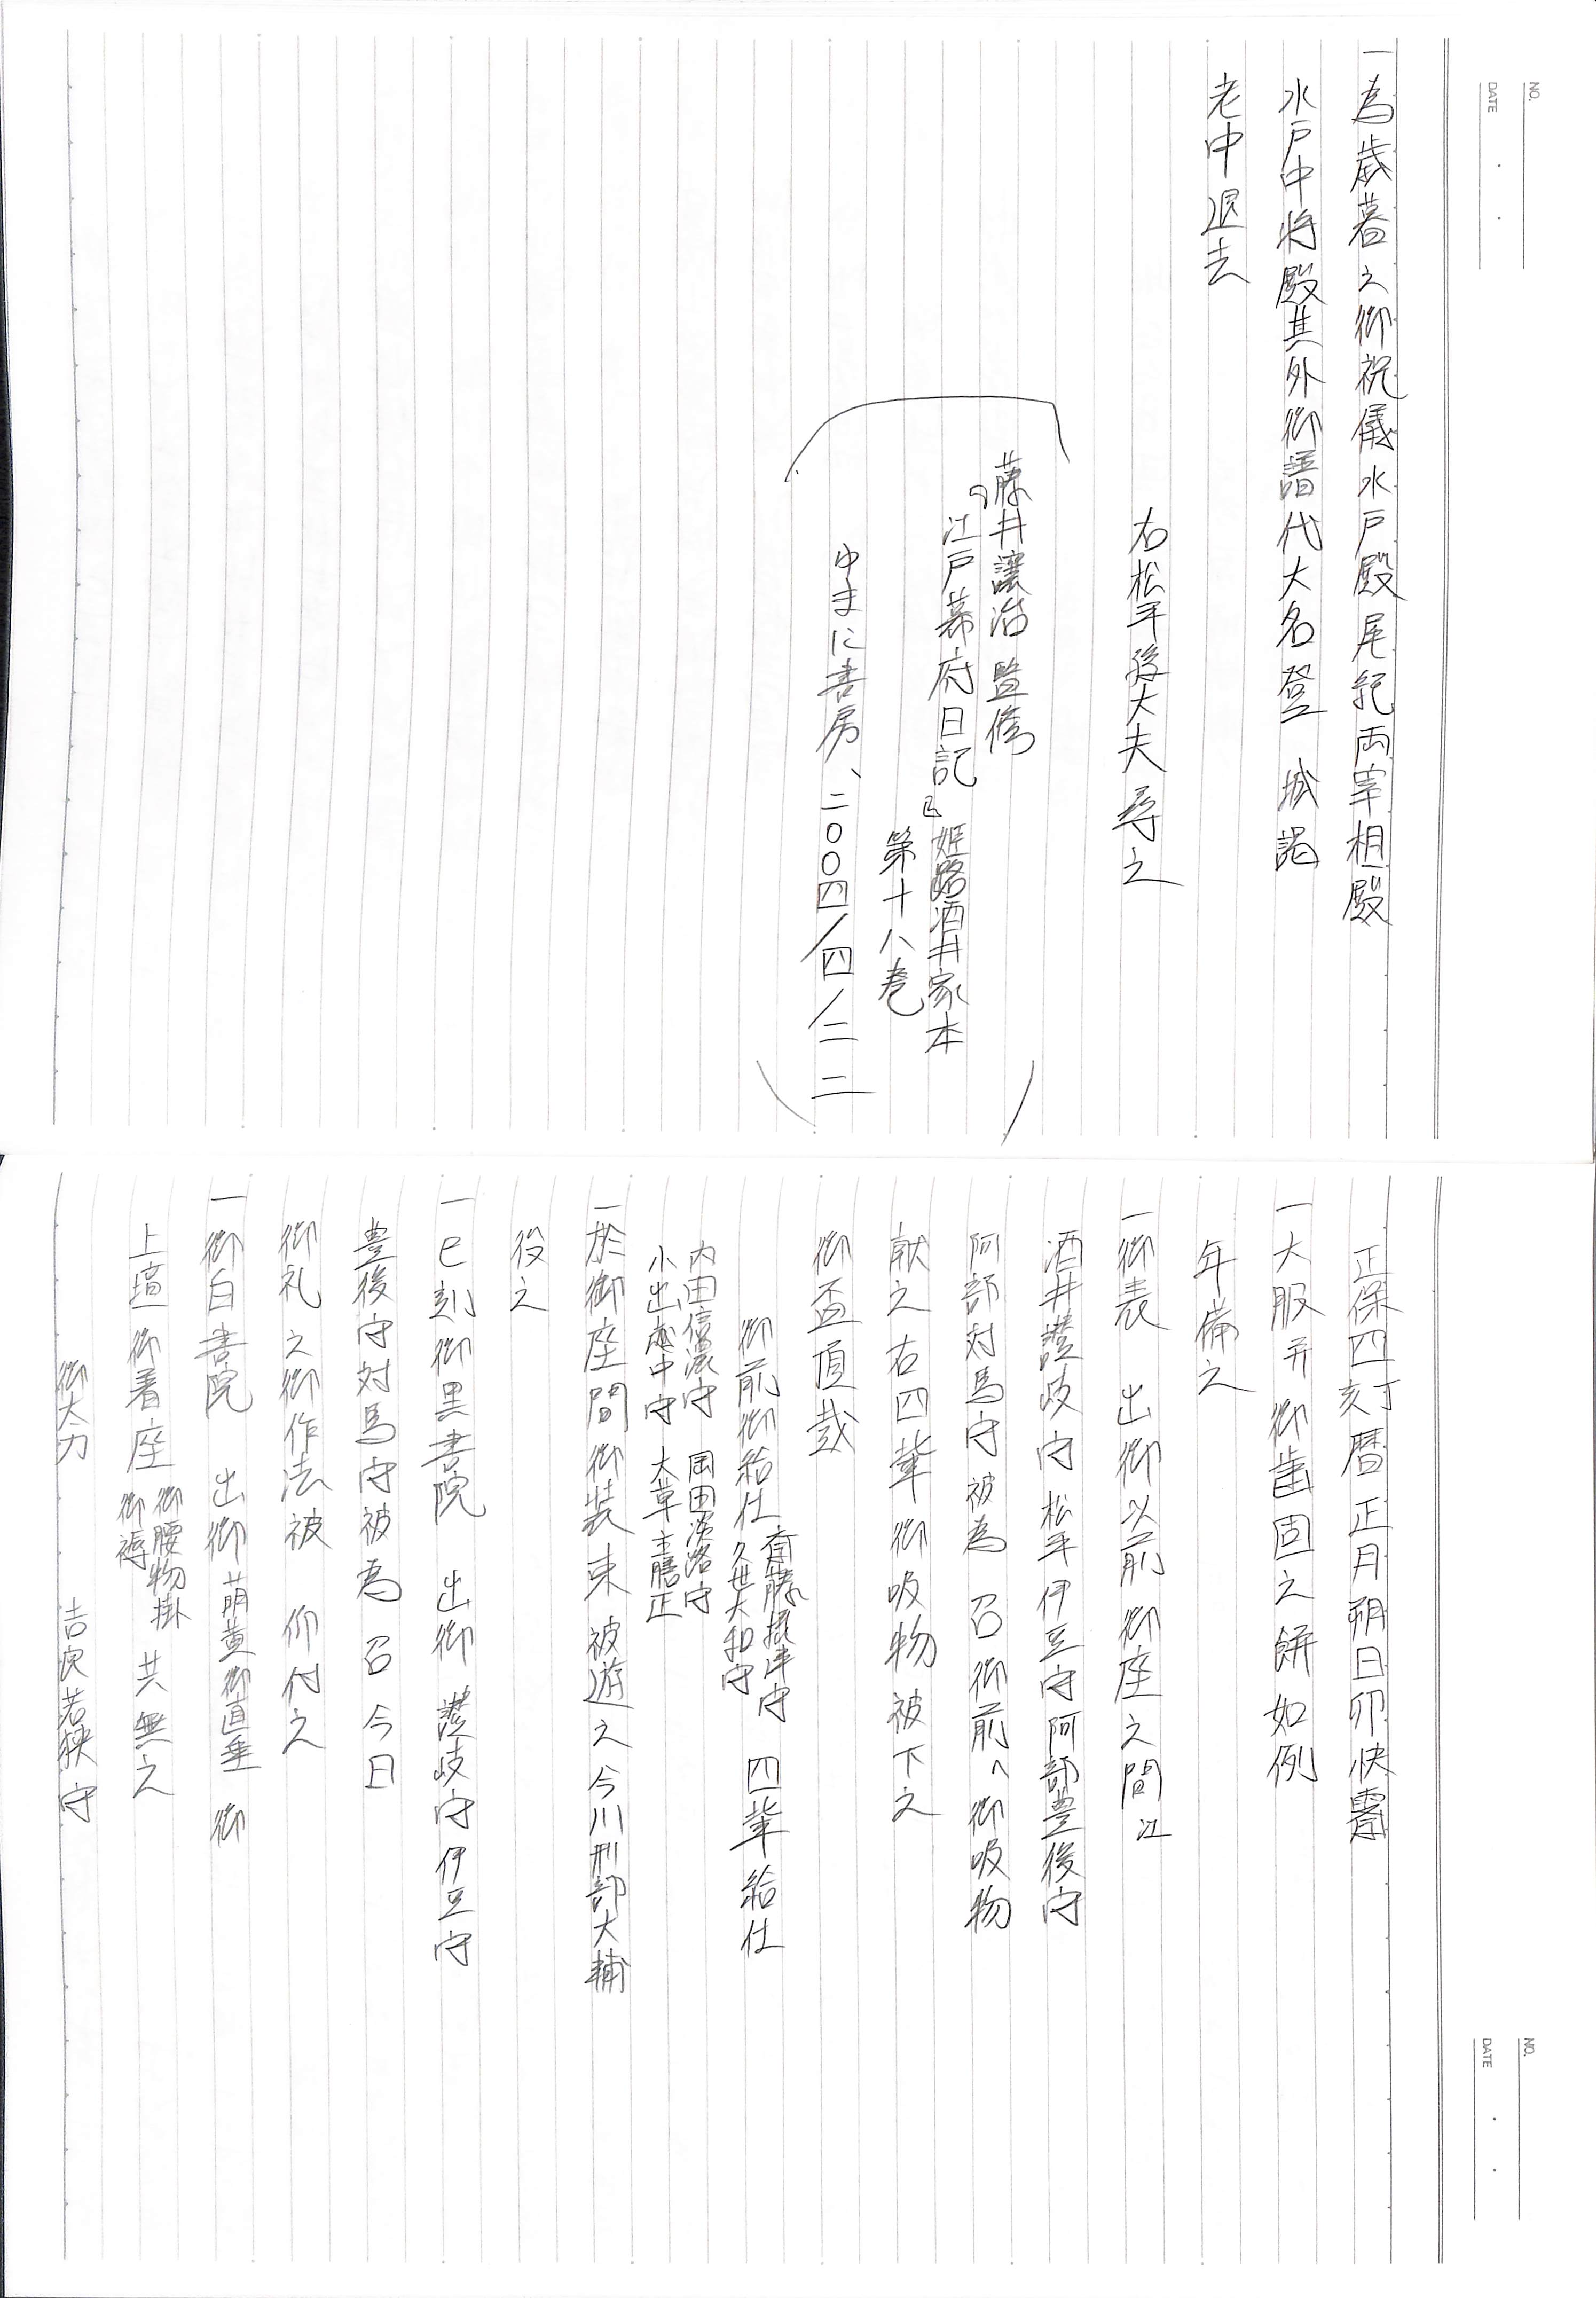 NO.
DATE
一為歳暮之御祝儀水戸殿尾紀両宰相殿
水戸中将殿其外御譜代大名登　城謁
老中退去
右松平孫大夫尋之
藤井讓治 監修
『江戸幕府日記』姫路酒井家本
第十八巻
ゆまに書房、二〇〇四/四/二二
NO.
DATE
正保四丁暦正月朔日卯刻快霽
一大服并御歯固之餅如例
年備之
一御表　出御以前御座之間江
酒井讃岐守松平伊豆守阿部豊後守
阿部対馬守被為　召御前へ御吸物
献之右四輩御吸物被下之
御盃頂戴
御前御給仕 斎藤摂津守 久世大和守　四輩給仕
内田信濃守　岡田淡路守
小出越中守　大草主膳正
一於御座間御装束被遊之今川刑部大輔
役之
一巳刻御黒書院　出御　讃岐守伊豆守
豊後守対馬守被為　召今日
御礼之御作法被　仰付之
一御白書院　出御 萌黄御直垂　御
上壇御着座 御腰物掛 御褥　共無之
御太刀　吉良若狭守